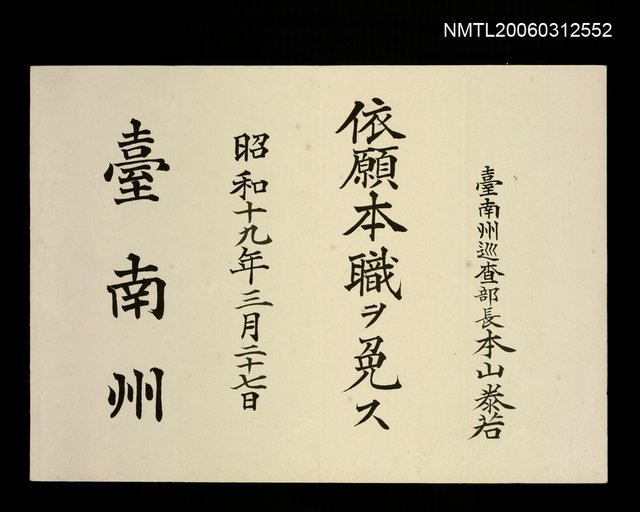 NMTL20060312552
臺南州巡查部長本山泰若
依願本職ヲ免ス
昭和十九年三月二十七日
臺南州